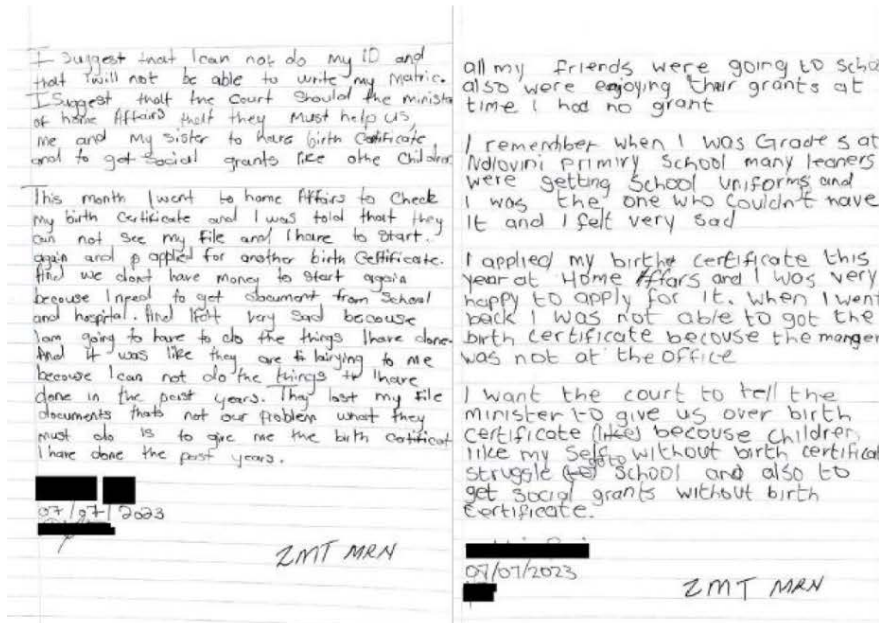 I suggest that I can not do my ID and
that I will not be able to write my matric.
I suggest that the court should the ministe
of home Affairs that they must help us
me and my sister to have birth Certificate
and to get social grants like othe Children
This month I went to home Affairs to Check
my birth Certificate and I was told that they
can not see my file and I have to start.
again and p applied for another birth Certificate.
And we dont have money to start again
because I need to get document from School
and hospital. And I felt very sad because
I am going to have to do the things I have done.
And it was like they are to to me
because I can not do the things I have
done in the past years. They lost my file
documents thats not our problem what they
must do is to give me the birth Certificat
I have done the past years.
07/07/2023
ZMT MRN
all my friends were going to scho
also were enjoying their grants at
time I had no grant
I remember when I was Grade 5 at
Ndlovini primiry School many leaners
were getting School uniforms and
I was the one who couldn't have
it and I felt very sad
I applied my birthe certificate this
year at Home Affars and I was very
happy to apply for it. When I went
back I was not able to got the
birth certificate becouse the manger
was not at the office
I want the court to tell the
minister to give us over birth
certificate (like) becouse children
like my self without birth certificat
struggle (to) go to school and also to
get social grants without birth
certificate.
07/07/2023
ZMT MRN